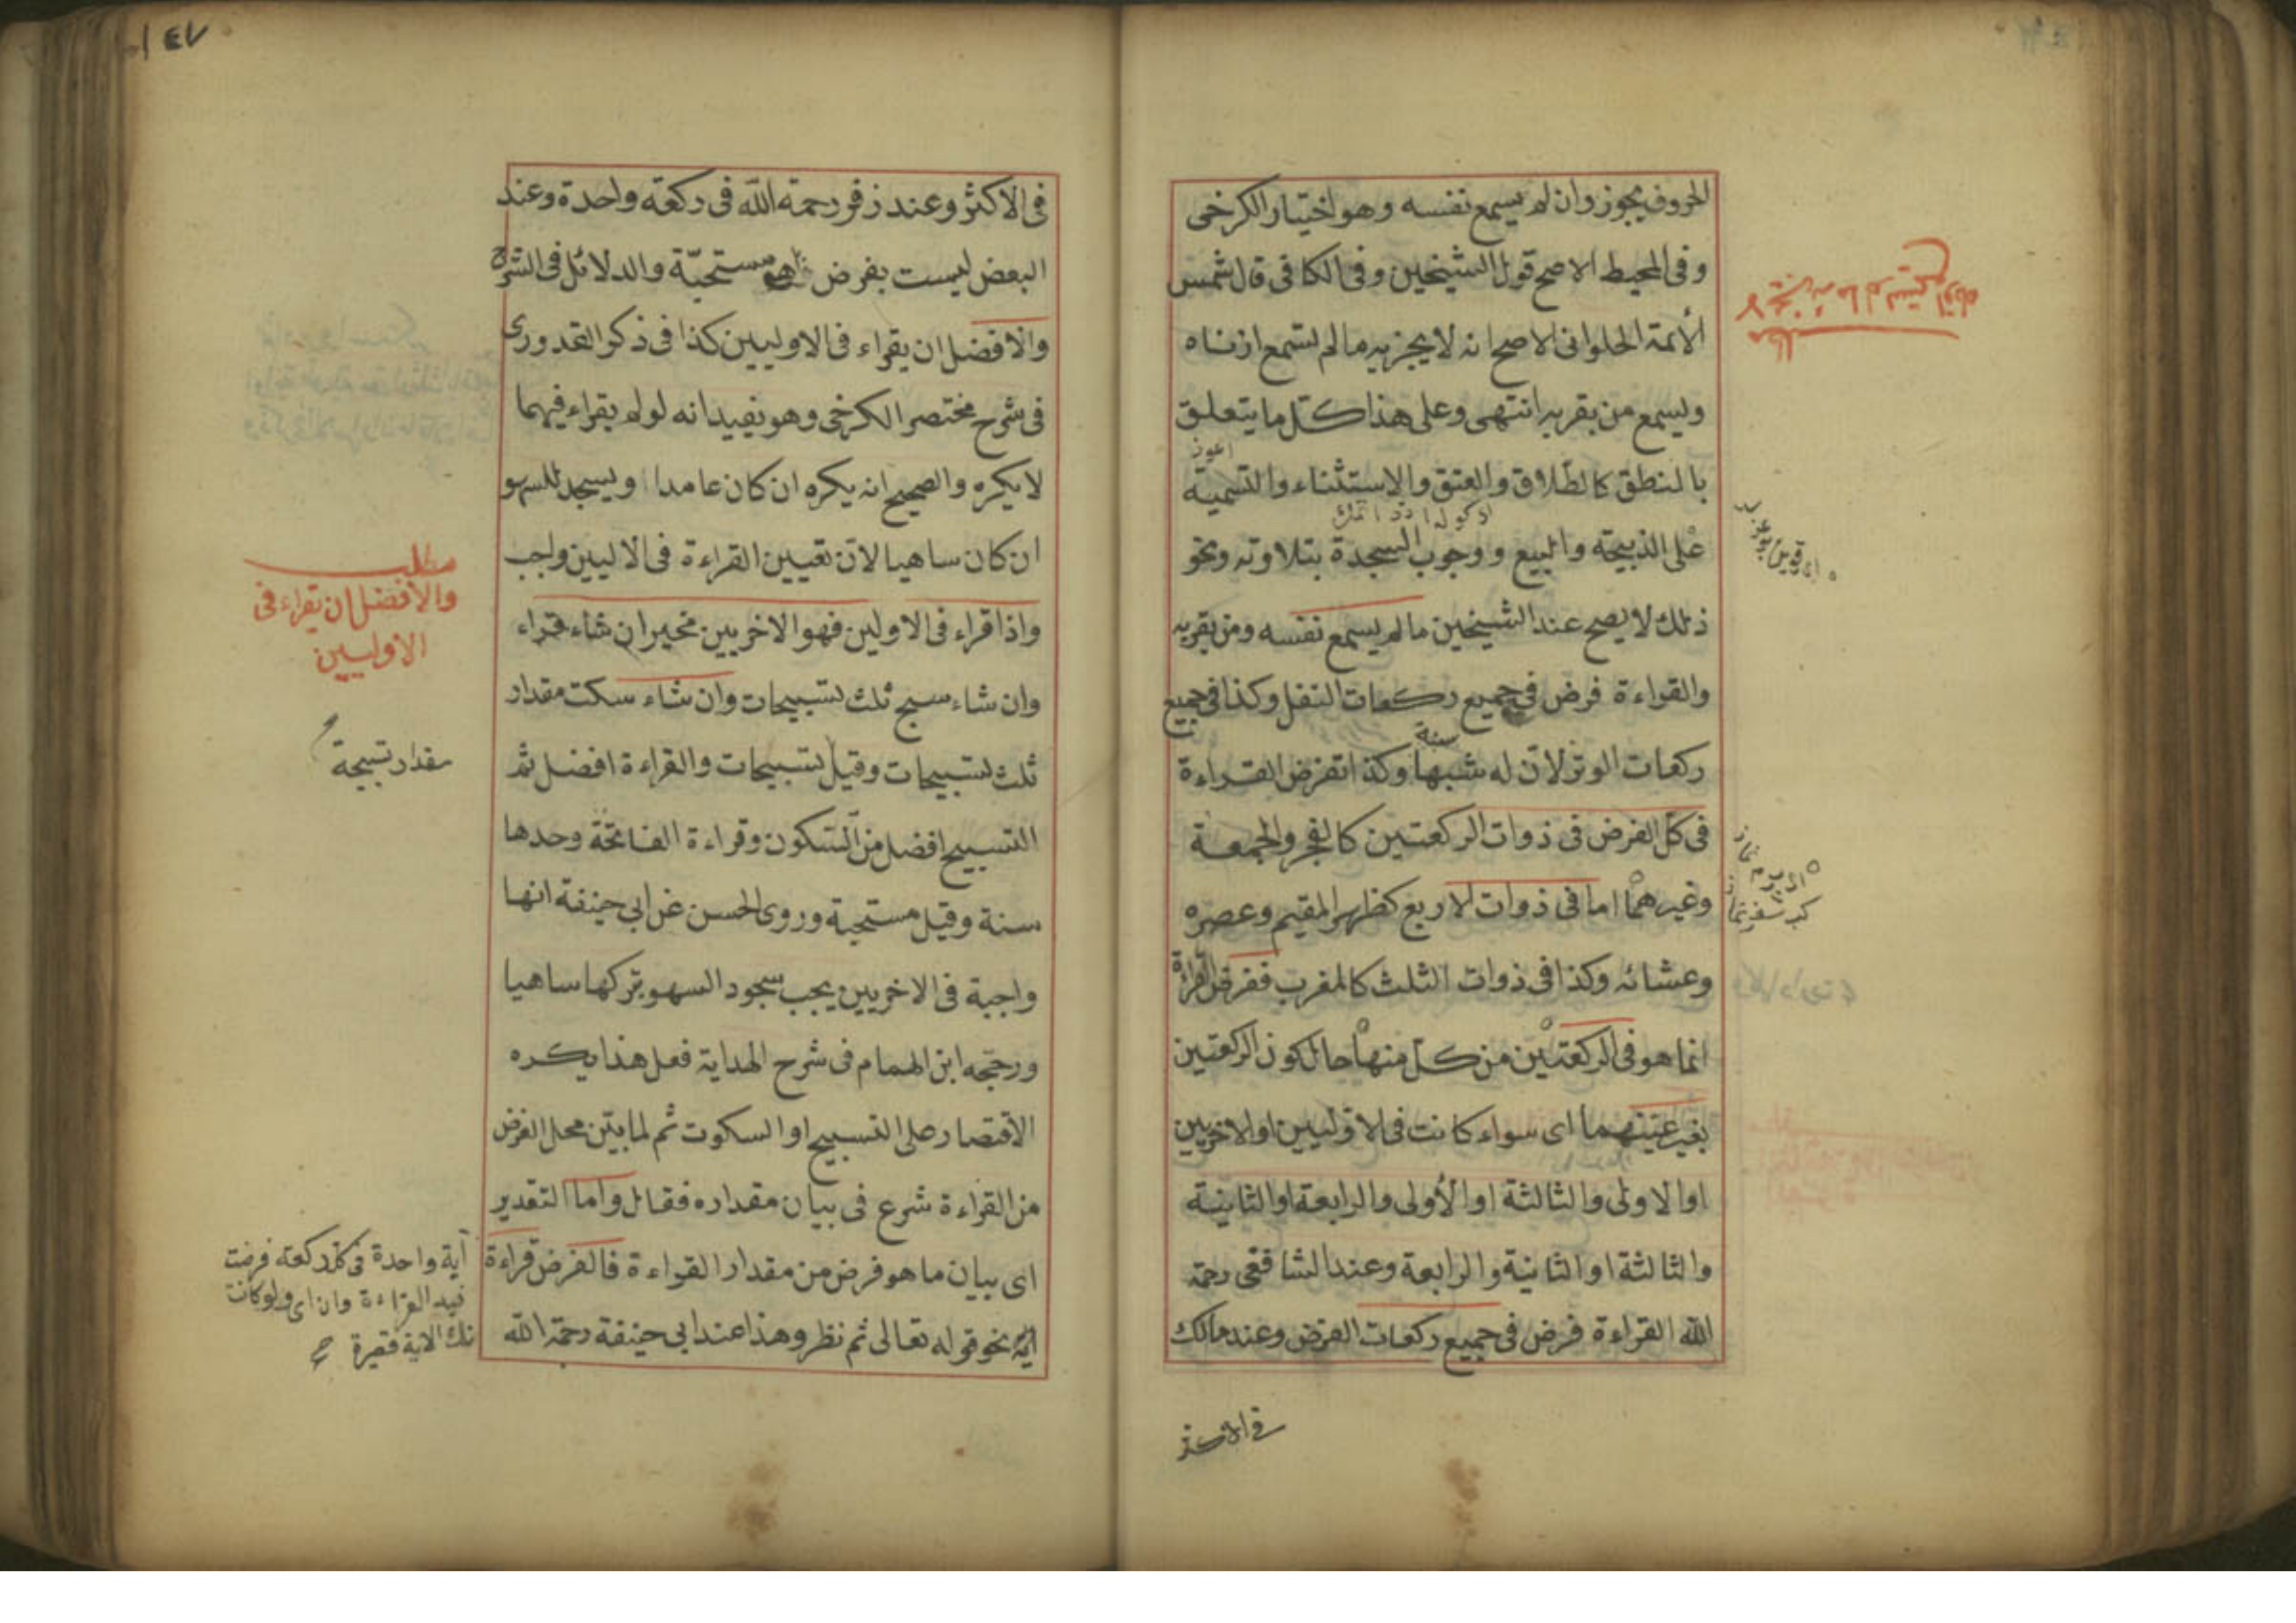 الحروف يجوز وان لم يسمع نفسه وهو اختيار الكرخى
وفى المحيط الاصح قول الشيخين وفى الكافى قال شمس
الأئمة الحلوانى الاصح انه لا يجزيه ما لم تسمع اذناه
وليسمع من بقربه انتهى وعلى هذا كل ما يتعلق
بالنطق كالطلاق والعتق والاستثناء والتسمية
على الذبيحة والبيع ووجوب السجدة بتلاوته ونحو
ذلك لا يصح عند الشيخين ما لم يسمع نفسه ومن بقربه
والقراءة فرض فى جميع ركعات النفل وكذا فى جميع
ركعات الوتر لانّ له شبها وكذا تفرض القراءة
سنة
فى كلّ الفرض فى ذوات الركعتين كالفجر والجمعة
وغيرهما اما فى ذوات الاربع كظهر المقيم وعصره
وعشائه وكذا فى ذوات الثلث كالمغرب ففرض القراءة
انما هو فى الركعتين من كل منها حال كون الركعتين
بغير عينهما اى سواء كانت فى الاوليين او الاخريين
او الاولى والثالثة او الأولى والرابعة او الثانية
والثالثة او الثانية والرابعة وعند الشافعى رحمة
الله القراءة فرض فى جميع ركعات الفرض وعند مالك
فى الاكثر
٤٧
فى الاكثر وعند زفر رحمة الله فى ركعة واحدة وعند
البعض ليست بفرض هو مستحبّة والدلائل فى الشرح
والافضل ان يقراء فى الاوليين كذا فى ذكر القدورى
فى شرح مختصر الكرخى وهو يفيد انه لو لم يقراء فيهما
لا يكره والصحيح انه يكره ان كان عامدا ويسجد للسهو
ان كان ساهيا لانّ تعيين القراءة فى الاليين واجب
واذا قراء فى الاولين فهو الاخريين مخير ان شاء قراء
وان شاء سبح ثلث تسبيحات وان شاء سكت مقدار
ثلث تسبيحات وقيل تسبيحات والقراءة افضل ثم
التسبيح افضل من السكون وقراءة الفاتحة وحدها
سنة وقيل مستحبة وروى الحسن عن ابى حنيفة انها
واجبة فى الاخريين يجب سجود السهو بتركها ساهيا
ورجّحه ابن الهمام فى شرح الهداية فعل هذا يكره
الاقتصار على التسبيح او السكوت ثم لما بيّن محل الفرض
من القراءة شرع فى بيان مقداره فقال واما التقدير
اى بيان ما هو فرض من مقدار القراءة فالفرض قراءة
اية نحو قوله تعالى ثم نظر وهذا عند ابى حنيفة رحمة الله
مطلب
والافضل ان يقراء فى
الاوليين
مقدار تسبيحة
آية واحدة فى كل ركعة فرضت
فيه القراءة وان اى ولو كانت
تلك الاية قصيرة